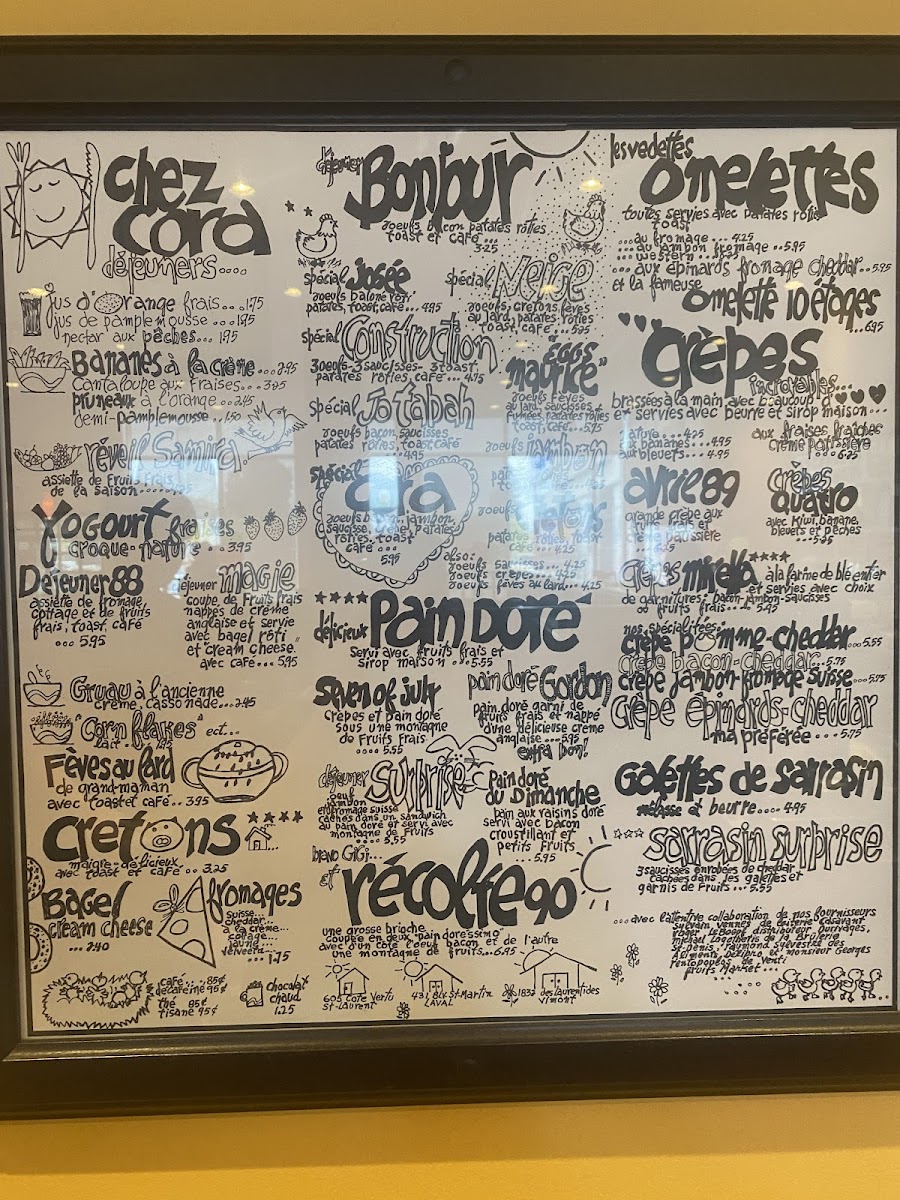 chez
cora
déjeuners....
jus d'orange frais...1.75
jus de pamplemousse
nectar aux pêches...
Bananes à la crème...2.95
Cantaloupe aux fraises...3.95
pruneaux à l'orange...2.45
demi-pamplemousse...1.50
réveil Samira
assiette de fruits frais
de la saison
Yogourt fraises
croque-nature...3.95
Déjeuner 88
assiette de fromage
cottage et de fruits
frais, toast, café
...5.95
déjeuner magie
coupe de fruits frais
nappés de crème
anglaise et servie
avec bagel rôti
et cream cheese
avec café...5.95
Gruau à l'ancienne
crème, cassonade...2.45
"Corn flakes" ect...
lait
Fèves au lard
de grand-maman
avec toast et café...3.95
Cretons
maigre-délicieux
avec toast et café...3.25
Bagel
cream cheese
...2.40
fromages
suisse...
cheddar...
à la crème...
cottage...
jaune...
velveeta...
...1.75
café...85¢
décaféiné 95¢
thé 85¢
tisane 95¢
chocolat
chaud
1.25
déjeuner Bonjour
2oeufs bacon patates rôties
toast et café...
3.25
spécial Josée
2oeufs baloné rôti
patates, toast, café...4.95
spécial Neige
2oeufs, cretons, fèves
au lard, patates rôties
toast, café...5.95
spécial Construction
3oeufs-3saucisses-3toast
patates rôties, café...4.75
"Eggs
maurice"
2oeufs fèves
au lard, saucisses
fumées, patates rôties
toast, café...5.75
spécial Jo tabah
2oeufs, bacon, saucisses
patates rôties, toast, café
...4.95
2oeufs jambon
spécial
Cora
2oeufs, bacon, jambon,
saucisse, toast, patates
rôties, toast
café...
5.95
2oeufs cretons
patates rôties, toast
café...4.25
also:
2oeufs saucisses...4.25
2oeufs crêpe...4.25
2oeufs fèves au lard...4.25
délicieux Pain Doré
servi avec fruits frais et
sirop maison...5.55
Seven of july
crêpes et pain doré
sous une montagne
de fruits frais
...5.55
pain doré Gordon
pain doré garni de
fruits frais et nappé
d'une délicieuse crème
anglaise...5.95
extra bon!
déjeuner surprise
oeuf
jambon
enfromagé suisse
cachés dans un sandwich
au pain doré et servi avec
montagne de fruits
...5.55
Pain doré
du Dimanche
pain aux raisins doré
servi avec bacon
croustillant et
petits fruits
...5.95
bravo GiGi...
et récolte 90
une grosse brioche
coupée en deux "pain doressimo"
avec d'un côté l'oeuf bacon et de l'autre
une montagne de fruits...6.45
605 Côte Vertu
St-Laurent
St-Martin
LAVAL
1832 des laurentides
Vimont
les vedettes
omelettes
toutes servies avec patates rôties
toast
...au fromage...4.25
...au jambon fromage...5.95
...western...
...aux épinards fromage cheddar...5.95
et la fameuse
omelette 10 étages
...6.95
crèpes
incroyables...
brassées à la main avec beaucoup d'
et servies avec beurre et sirop maison...
nature...4.25
aux bananes...4.95
aux bleuets...4.95
aux fraises fraîches
crème patissière
...6.25
avril 89
grande crêpe aux
fruits frais et
crème patissière
crêpes
quatro
avec kiwi, banane,
bleuets et pêches
...5.95
crêpes mirella à la farine de blé entier
et servies avec choix
de garnitures: bacon-jambon-saucisses
ou fruits frais...5.45
nos spécialitées:
crêpe pomme-cheddar...5.55
crêpe bacon-cheddar...5.75
crêpe jambon-fromage suisse...5.75
crêpe épinards-cheddar
ma préférée...5.75
Galettes de sarrasin
mélasse et beurre...4.95
sarrasin surprise
3 saucisses enrobées de cheddar
cachées dans les galettes et
garnis de fruits...5.55
...avec l'attentive collaboration de nos fournisseurs